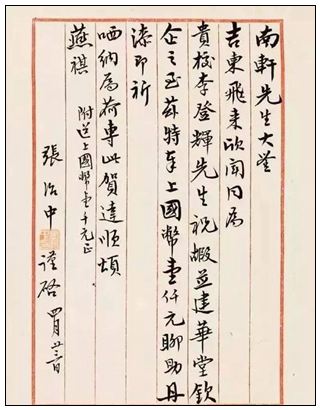 南軒先生大鉴
吉東飛来欣闻同為
貴校李登輝先生祝嘏並建華堂欽
企之至兹特奉上國幣壹仟元聊助丹
漆即祈
哂納為荷專此賀達順頌
燕祺
附送上國幣壹千元正
張治中 謹啓 四月廿三日